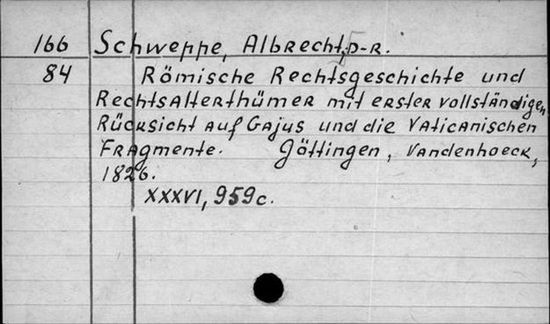 166 Schweppe, Albrecht, D-R.
84 Römische Rechtsgeschichte und
Rechtsalterthümer mit erster vollständigen
Rücksicht auf Gajus und die Vaticanischen
Fragmente. Göttingen, Vandenhoeck,
1826.
XXXVI, 959c.